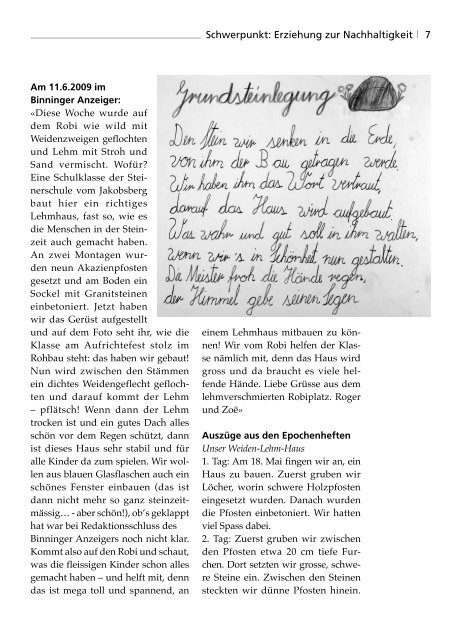 Schwerpunkt: Erziehung zur Nachhaltigkeit | 7
Am 11.6.2009 im
Binninger Anzeiger:
«Diese Woche wurde auf
dem Robi wie wild mit
Weidenzweigen geflochten
und Lehm mit Stroh und
Sand vermischt. Wofür?
Eine Schulklasse der Stei-
nerschule vom Jakobsberg
baut hier ein richtiges
Lehmhaus, fast so, wie es
die Menschen in der Stein-
zeit auch gemacht haben.
An zwei Montagen wur-
den neun Akazienpfosten
gesetzt und am Boden ein
Sockel mit Granitsteinen
einbetoniert. Jetzt haben
wir das Gerüst aufgestellt
und auf dem Foto seht ihr, wie die
Klasse am Aufrichtefest stolz im
Rohbau steht: das haben wir gebaut!
Nun wird zwischen den Stämmen
ein dichtes Weidengeflecht gefloch-
ten und darauf kommt der Lehm
– pflätsch! Wenn dann der Lehm
trocken ist und ein gutes Dach alles
schön vor dem Regen schützt, dann
ist dieses Haus sehr stabil und für
alle Kinder da zum spielen. Wir wol-
len aus blauen Glasflaschen auch ein
schönes Fenster einbauen (das ist
dann nicht mehr so ganz steinzeit-
mässig… - aber schön!), ob's geklappt
hat war bei Redaktionsschluss des
Binninger Anzeigers noch nicht klar.
Kommt also auf den Robi und schaut,
was die fleissigen Kinder schon alles
gemacht haben – und helft mit, denn
das ist mega toll und spannend, an
Grundsteinlegung
Den Stein wir senken in die Erde,
von ihm der Bau getragen werde.
Wir haben ihm das Wort vertraut,
darauf das Haus wird aufgebaut.
Was wahr und gut soll in ihm walten,
wenn wir's in Schönheit nun gestalten.
Die Meister froh die Hände regen,
der Himmel gebe seinen Segen.
einem Lehmhaus mitbauen zu kön-
nen! Wir vom Robi helfen der Klas-
se nämlich mit, denn das Haus wird
gross und da braucht es viele hel-
fende Hände. Liebe Grüsse aus dem
lehmverschmierten Robiplatz. Roger
und Zoë»
Auszüge aus den Epochenheften
Unser Weiden-Lehm-Haus
1. Tag: Am 18. Mai fingen wir an, ein
Haus zu bauen. Zuerst gruben wir
Löcher, worin schwere Holzpfosten
eingesetzt wurden. Danach wurden
die Pfosten einbetoniert. Wir hatten
viel Spass dabei.
2. Tag: Zuerst gruben wir zwischen
den Pfosten etwa 20 cm tiefe Fur-
chen. Dort setzten wir grosse, schwe-
re Steine ein. Zwischen den Steinen
steckten wir dünne Pfosten hinein.